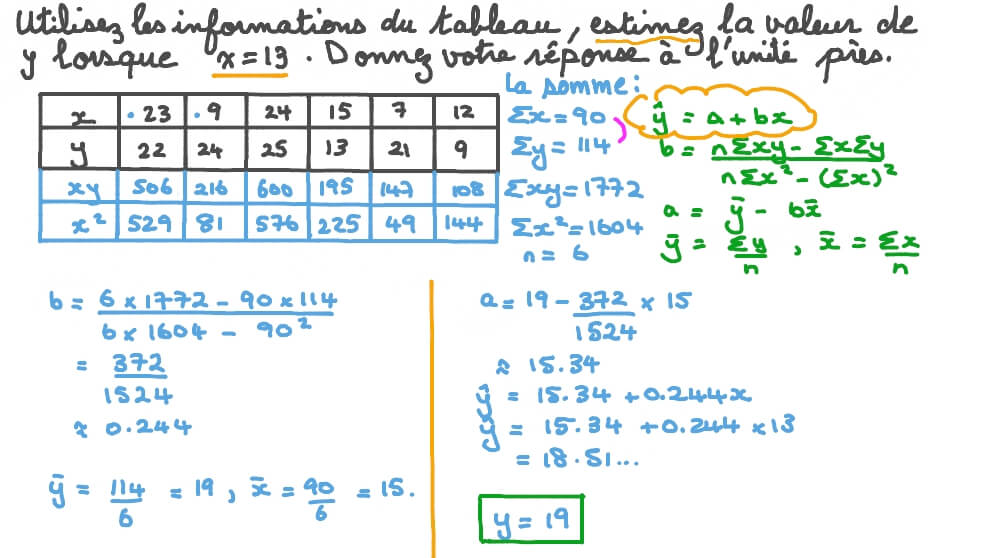 Utilisez les informations du tableau, estimez la valeur de
y lorsque x = 13. Donnez votre réponse à l'unité près.
x 23 9 24 15 7 12
y 22 24 25 13 21 9
xy 506 216 600 195 147 108
x² 529 81 576 225 49 144
La somme:
Σx = 90
Σy = 114
Σxy = 1772
Σx² = 1604
n = 6
ŷ = a + bx
b = nΣxy - ΣxΣy / nΣx² - (Σx)²
a = ȳ - bx̄
ȳ = Σy/n , x̄ = Σx/n
b = 6 × 1772 - 90 × 114 / 6 × 1604 - 90²
= 372 / 1524
≈ 0.244
ȳ = 114/6 = 19 , x̄ = 90/6 = 15.
a = 19 - 372/1524 × 15
≈ 15.34
ŷ = 15.34 + 0.244x
ŷ = 15.34 + 0.244 × 13
= 18.51...
y = 19